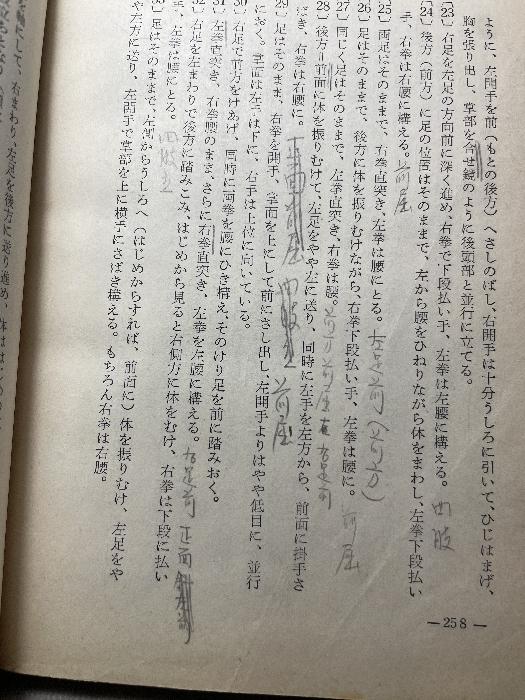 ように、左開手を前(もとの後方)へさしのばし、右開手は十分うしろに引いて、ひじはまげ、
胸を張り出し、掌部を合せ鏡のように後頭部と並行に立てる。
〔23〕右足を左足の方向前に深く進め、右拳で下段払い手、左拳は左腰に構える。 四股
〔24〕後方(前方)に足の位置はそのままで、左から腰をひねりながら体をまわし、左拳下段払い
手、右拳は右腰に構える。 前屈
25〕両足はそのままで、右拳直突き、左拳は腰にとる。 左足前(前方)
26〕足はそのままで、後方に体を振りむけながら、右拳下段払い手、左拳は腰に。 前屈
27〕同じく足はそのままで、左拳直突き、右拳は腰。
28〕後方=前面に体を振りむけて、左足をやや左に送り、同時に左手を左方から、前面に掛手さ
ばき、右拳は右腰に。 正面前屈 四股立 前屈
29〕足はそのまま、右拳を開手、掌面を上にして前にさし出し、左開手よりはやや低目に、並行
におく。掌面は左手は下に、右手は上位に向いている。
30〕右足で前方をけあげ、同時に両拳を腰にひき構え、そのけり足を前に踏みおく。
31〕左拳直突き、右拳腰のまま、さらに右拳直突き、左拳を左腰に構える。 右足前 正面
32〕右足を左まわりで後方に踏みこみ、はじめから見ると右側方に体をむけ、右拳は下段に払い
手、左拳は腰にとる。 四股立
足はそのままで、左側からうしろへ(はじめからすれば、前面に)体を振りむけ、左足をや
や左方に送り、左開手で掌部を上に横手にさばき構える。もちろん右拳は右腰。
を軸にして、右まわり、左足を後方に送り進め、
—258—